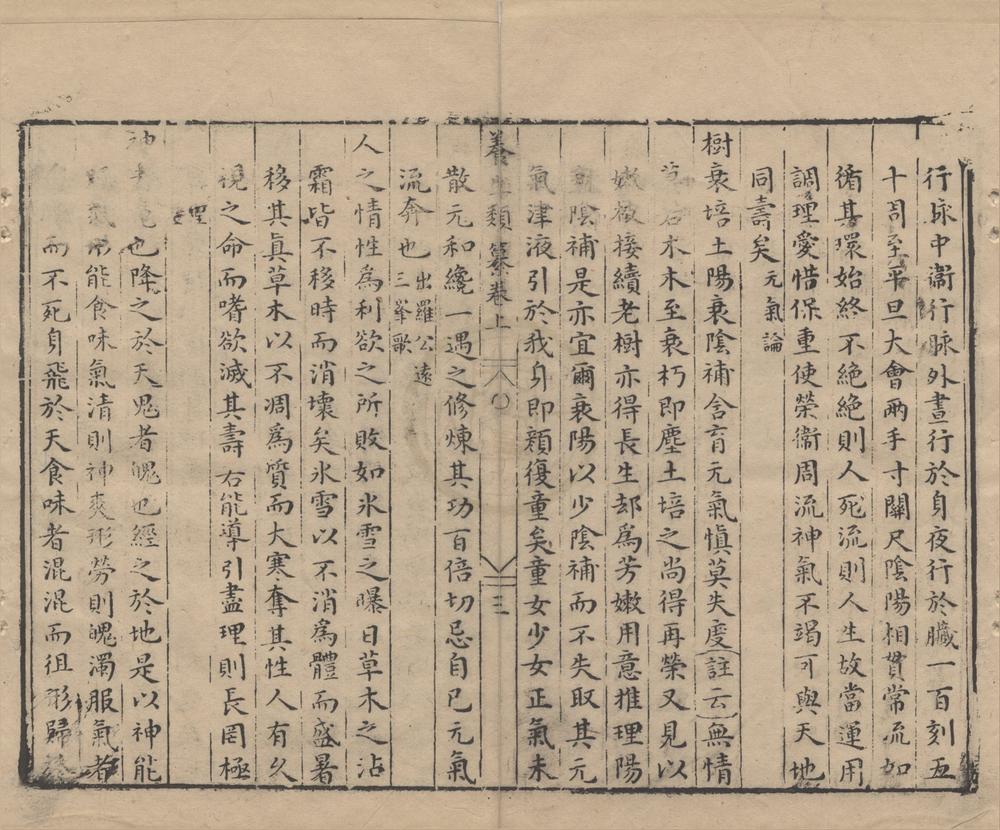 行脉中衞行脈外晝行於身夜行於臟一百刻五
十周至平旦大會兩手寸關尺陰陽相貫常流如
循其環始終不絶絶則人死流則人生故當運用
調理愛惜保重使榮衞周流神氣不竭可與天地
同壽矣元氣論
樹衰培土陽衰陰補含育元氣愼莫失度註云無情
木木至衰朽即塵土培之尚得再榮又見以
嫩枝接續老樹亦得長生却爲芳嫩用意推理陽
陰補是亦宜爾衰陽以少陰補而不失取其元
氣津液引於我身即顔復童矣童女少女正氣未
養生類纂卷上 三
散元和纔一遇之修煉其功百倍切忌自己元氣
流奔也出羅公遠三峯歌
人之情性爲利欲之所敗如氷雪之曝日草木之沾
霜皆不移時而消壞矣氷雪以不消爲體而盛暑
移其眞草木以不凋爲質而大寒奪其性人有久
視之命而嗜欲滅其壽右能導引盡理則長罔極
也降之於天鬼者魄也經之於地是以神能
能食味氣清則神爽形勞則魄濁服氣者
而不死身飛於天食味者混混而徂形歸